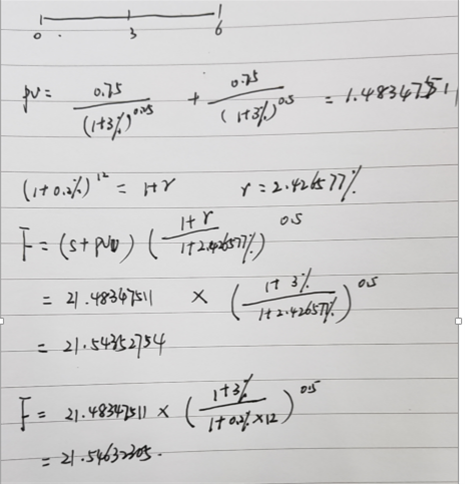 0 . 3 6
PV = 0.75 / (1+3%)^0.25 + 0.75 / (1+3%)^0.5 = 1.48347511
(1+0.2%)^12 = 1+r r = 2.426577%
F = (S + PV0) ( 1+r / 1+2.426577% )^0.5
= 21.48347511 × ( 1+3% / 1+2.42657% )^0.5
= 21.54352754
F = 21.48347511 × ( 1+3% / 1+0.2%×12 )^0.5
= 21.54632305.